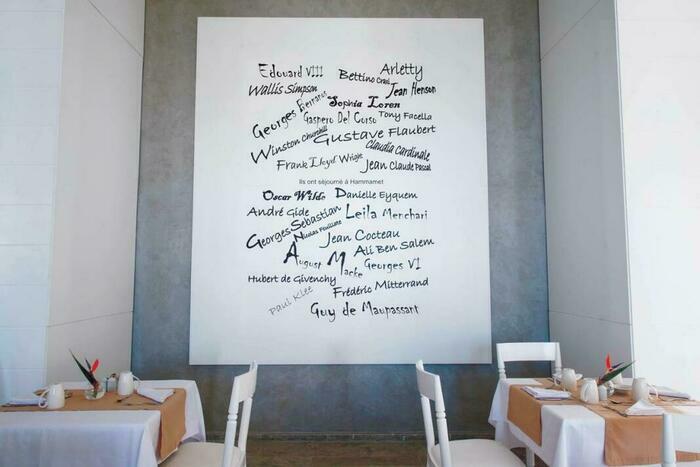 Edouard VIII
Bettino Craxi
Arletty
Wallis Simpson
Jean Henson
Georges Bernanos
Sophia Loren
Gaspero Del Corso
Tony Facella
Winston Churchill
Gustave Flaubert
Claudia Cardinale
Frank Lloyd Wright
Jean Claude Pascal
Ils ont séjourné à Hammamet
Oscar Wilde
Danielle Eyquem
André Gide
Georges Sebastian
Leila Menchari
Nicolas Feuillatte
Jean Cocteau
Ali Ben Salem
August Macke
Georges VI
Hubert de Givenchy
Paul Klee
Frédéric Mitterrand
Guy de Maupassant